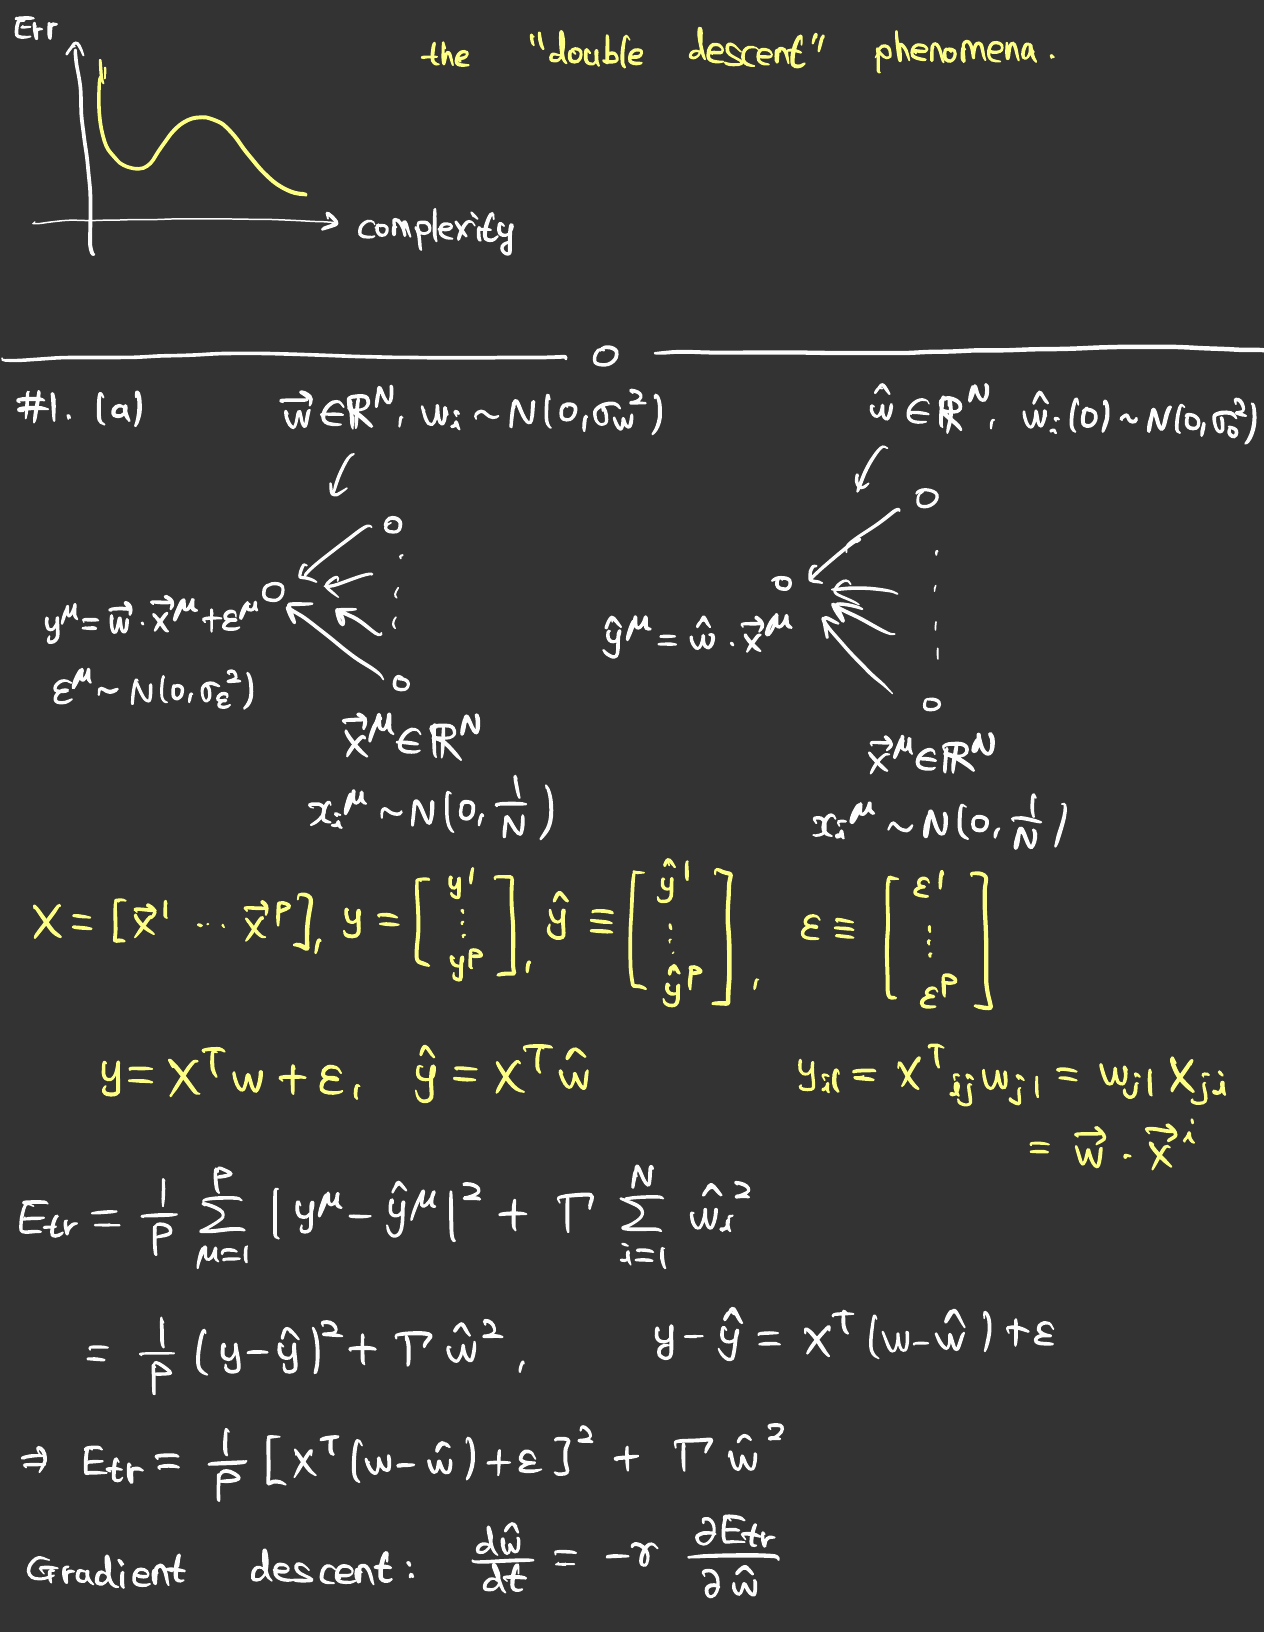 Err
the "double descent" phenomena.
complexity
#1. (a) w⃗ ∈ ℝ^N, w_i ~ N(0, σ_w²) ŵ ∈ ℝ^N, ŵ_i(0) ~ N(0, σ_0²)
y^μ = w⃗ · x⃗^μ + ε^μ
ŷ^μ = ŵ · x⃗^μ
ε^μ ~ N(0, σ_ε²)
x⃗^μ ∈ ℝ^N
x⃗^μ ∈ ℝ^N
x_i^μ ~ N(0, 1/N)
x_i^μ ~ N(0, 1/N)
X = [x⃗^1 ... x⃗^P], y = [y^1 ⋮ y^P], ŷ ≡ [ŷ^1 ⋮ ŷ^P], ε ≡ [ε^1 ⋮ ε^P]
y = X^T w + ε, ŷ = X^T ŵ
y_{i1} = X^T_{ij} w_{j1} = w_{j1} X_{ji}
= w⃗ · x⃗^i
E_tr = 1/P Σ_{μ=1}^{P} |y^μ - ŷ^μ|² + Γ Σ_{i=1}^{N} ŵ_i²
= 1/P (y - ŷ)² + Γ ŵ², y - ŷ = X^T (w - ŵ) + ε
⇒ E_tr = 1/P [X^T (w - ŵ) + ε]² + Γ ŵ²
Gradient descent: dŵ/dt = -γ ∂E_tr/∂ŵ